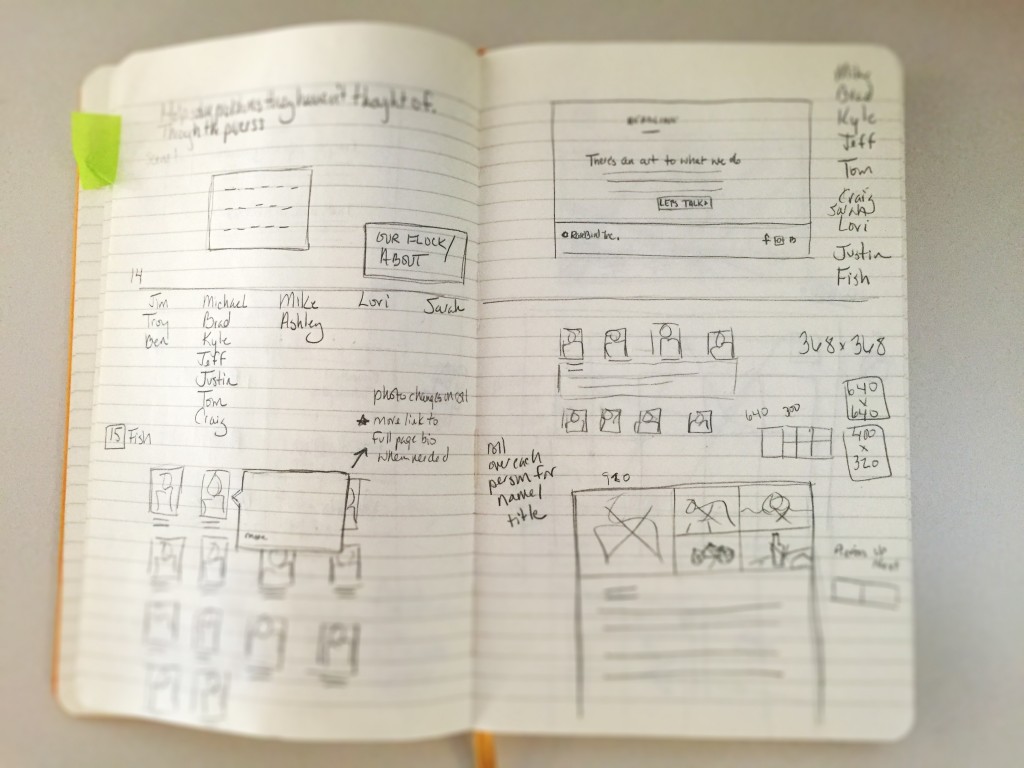 they haven't thought of.
OUR FLOCK/
ABOUT
14
Jim Michael Mike Lori Sarah
Troy Brad Ashley
Ben Kyle
Jeff
Justin
Tom
Craig
15 Fish
photo changes on
★ more link to
full page bio
when needed
more
There's an art to what we do
LETS TALK
Mike
Brad
Kyle
Jeff
Tom
Craig
Sarah
Lori
Justin
Fish
368 x 368
640
x
640
640 300
400
x
320
roll
over each
person for
name/
title
920